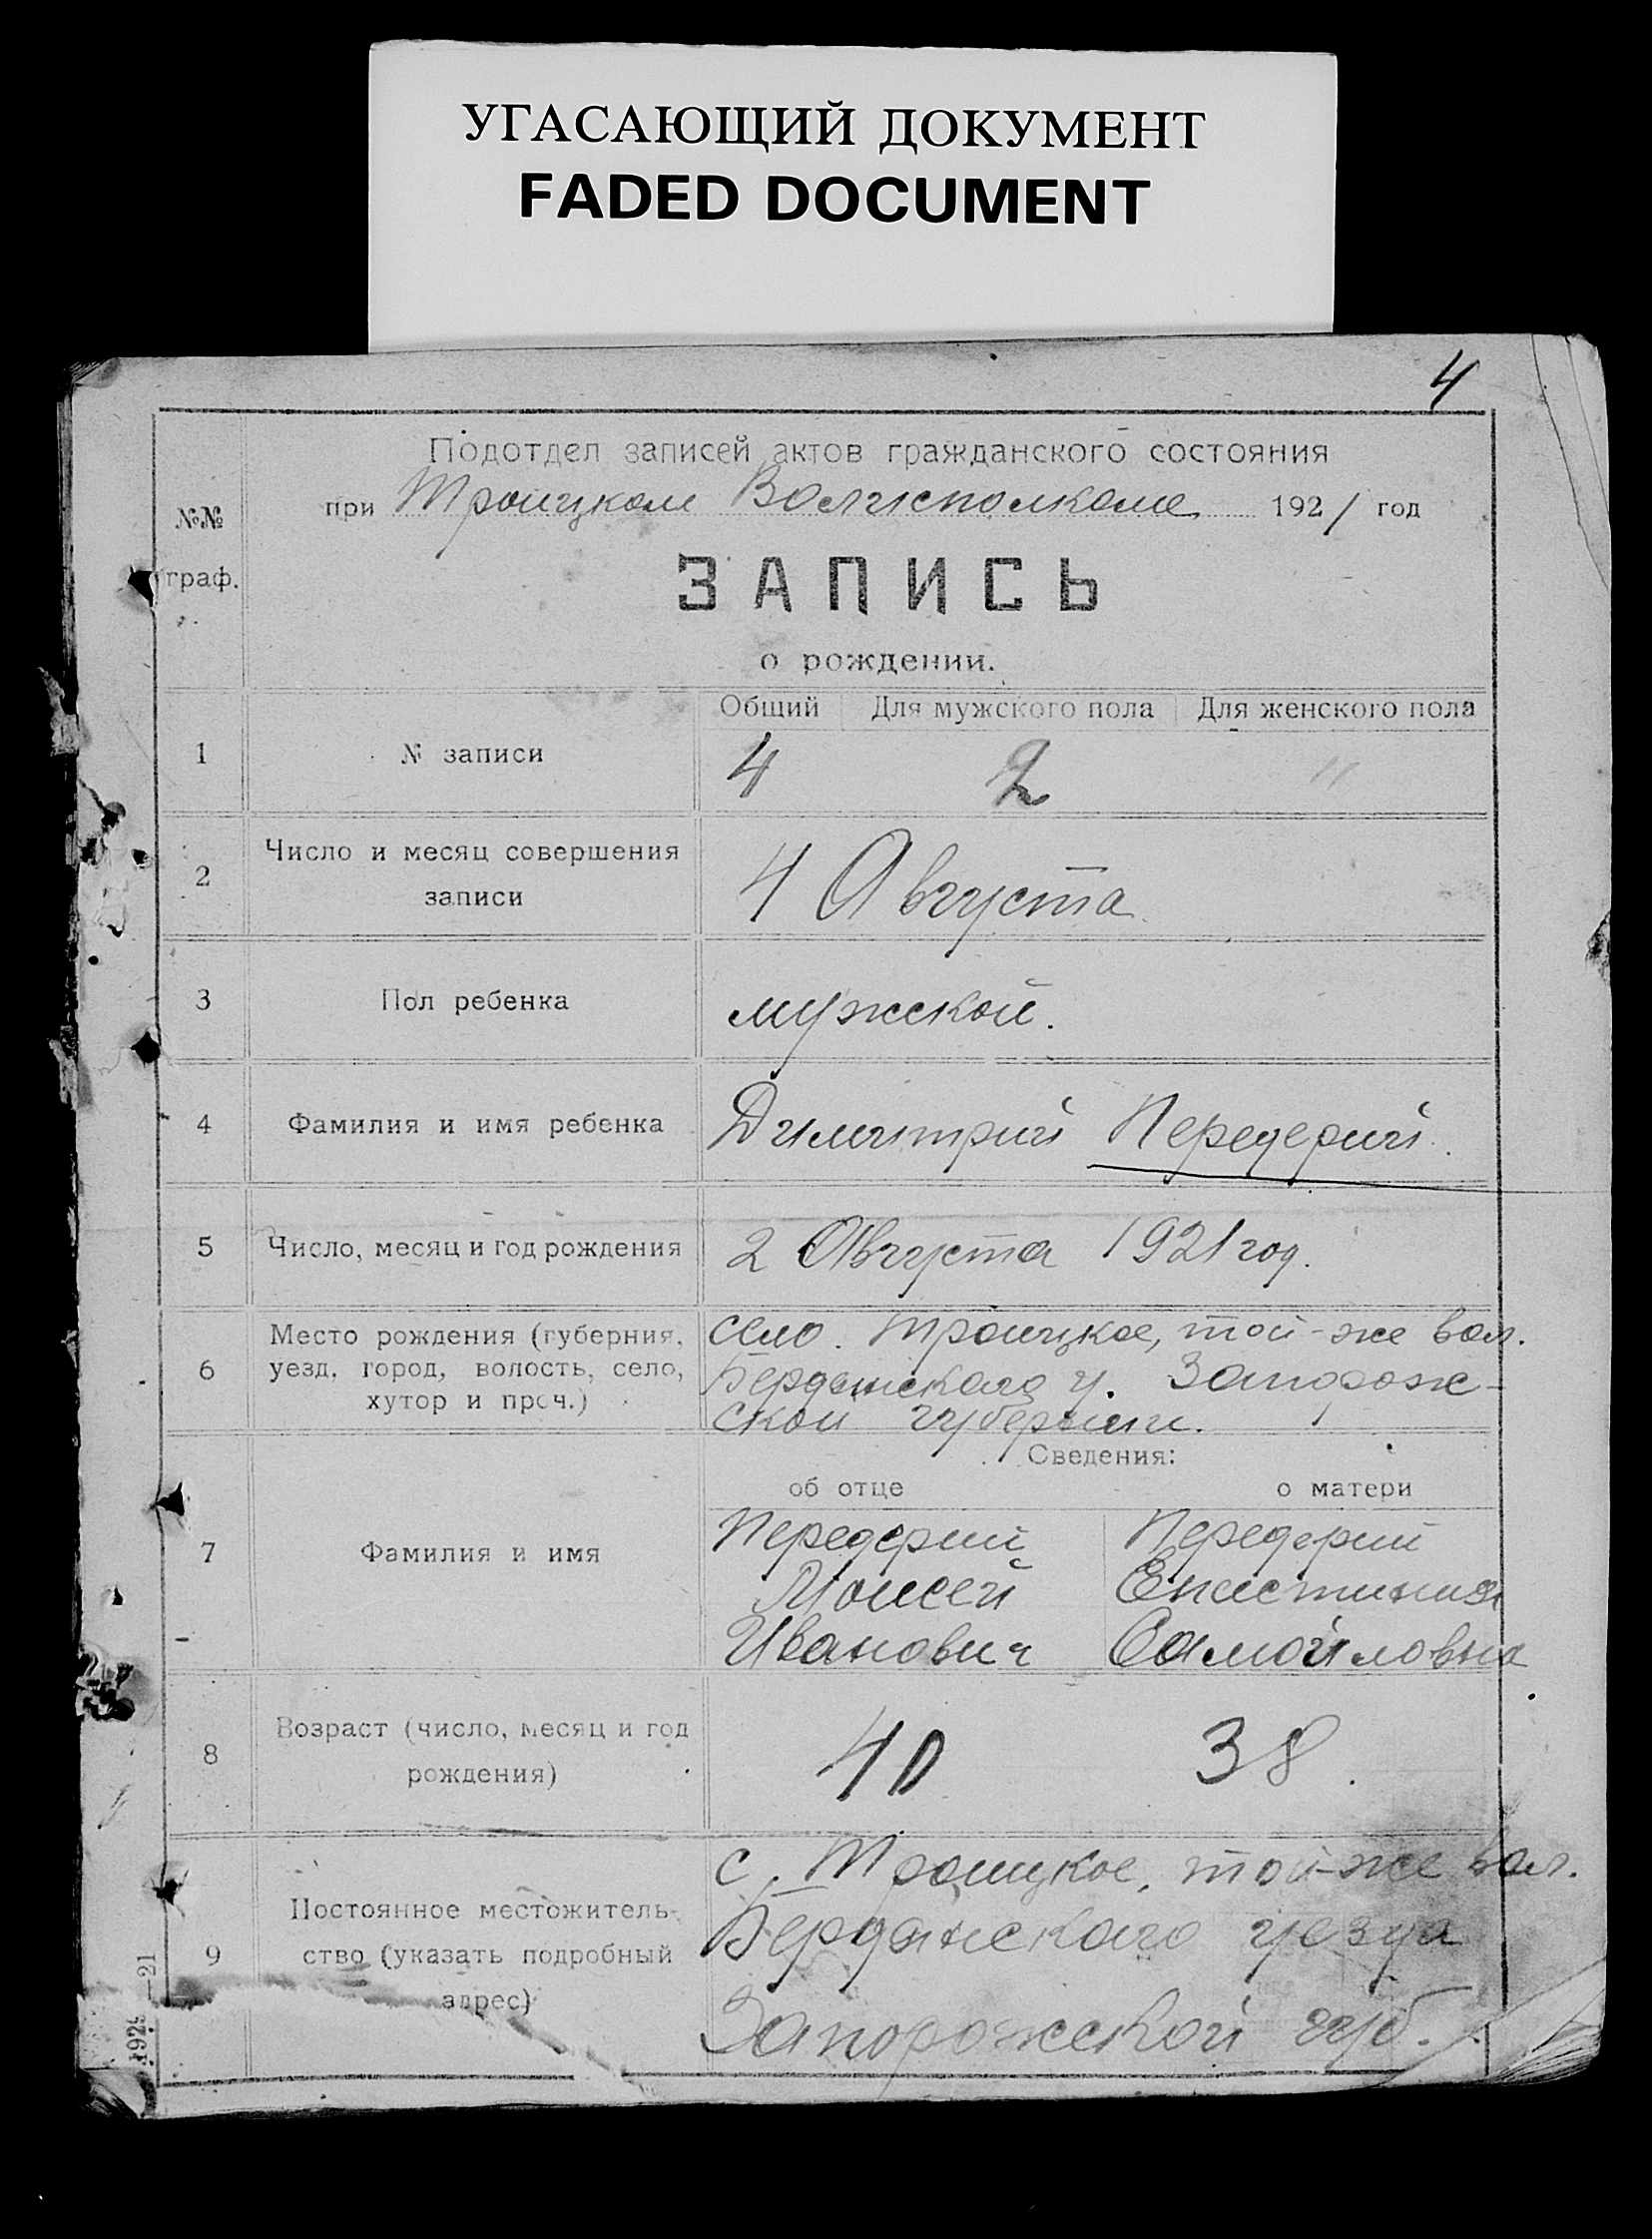 УГАСАЮЩИЙ ДОКУМЕНТ
FADED DOCUMENT
4
Подотдел записей актов гражданского состояния
при Троицком Волисполкоме 1921 год
№№
граф.
ЗАПИСЬ
о рождении.
Общий Для мужского пола Для женского пола
1 № записи 4 2 "
2 Число и месяц совершения
записи
4 Августа
3 Пол ребенка мужской.
4 Фамилия и имя ребенка Димитрий Передерий.
5 Число, месяц и год рождения 2 Августа 1921 год.
6 Место рождения (губерния,
уезд, город, волость, село,
хутор и проч.)
село. Троицкое, той-же вол.
Бердянскаго у. Запорож-
ской губернии.
Сведения:
об отце о матери
7 Фамилия и имя
Передерий Передерий
Моисей Епистиния
Иванович Самойловна
8 Возраст (число, месяц и год
рождения)
40 38.
9 Постоянное местожитель-
ство (указать подробный
адрес)
с. Троицкое, той-же вол.
Бердянскаго уезда
Запорожской губ.